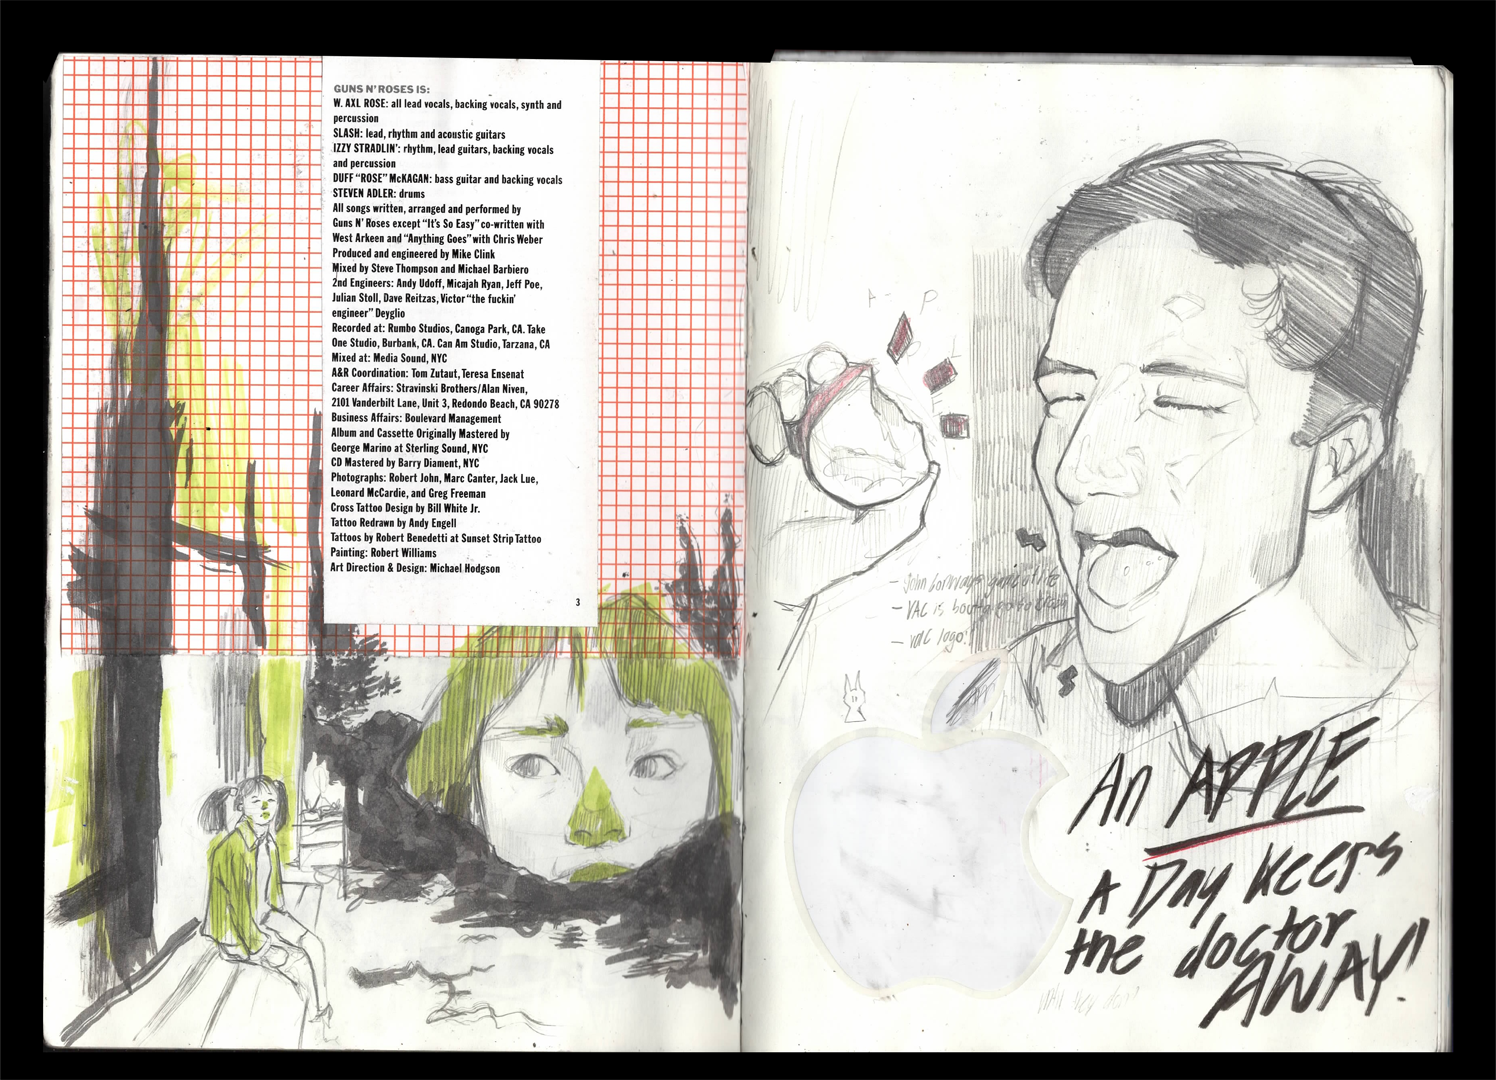 GUNS N' ROSES IS:
W. AXL ROSE: all lead vocals, backing vocals, synth and
percussion
SLASH: lead, rhythm and acoustic guitars
IZZY STRADLIN': rhythm, lead guitars, backing vocals
and percussion
DUFF "ROSE" McKAGAN: bass guitar and backing vocals
STEVEN ADLER: drums
All songs written, arranged and performed by
Guns N' Roses except "It's So Easy" co-written with
West Arkeen and "Anything Goes" with Chris Weber
Produced and engineered by Mike Clink
Mixed by Steve Thompson and Michael Barbiero
2nd Engineers: Andy Udoff, Micajah Ryan, Jeff Poe,
Julian Stoll, Dave Reitzas, Victor "the fuckin'
engineer" Deyglio
Recorded at: Rumbo Studios, Canoga Park, CA. Take
One Studio, Burbank, CA. Can Am Studio, Tarzana, CA
Mixed at: Media Sound, NYC
A&R Coordination: Tom Zutaut, Teresa Ensenat
Career Affairs: Stravinski Brothers/Alan Niven,
2101 Vanderbilt Lane, Unit 3, Redondo Beach, CA 90278
Business Affairs: Boulevard Management
Album and Cassette Originally Mastered by
George Marino at Sterling Sound, NYC
CD Mastered by Barry Diament, NYC
Photographs: Robert John, Marc Canter, Jack Lue,
Leonard McCardie, and Greg Freeman
Cross Tattoo Design by Bill White Jr.
Tattoo Redrawn by Andy Engell
Tattoos by Robert Benedetti at Sunset Strip Tattoo
Painting: Robert Williams
Art Direction & Design: Michael Hodgson
3
A P
- John Conways game of life
- VAC is
- VAC logo?
An APPLE
A Day Keeps
the doctor
AWAY!